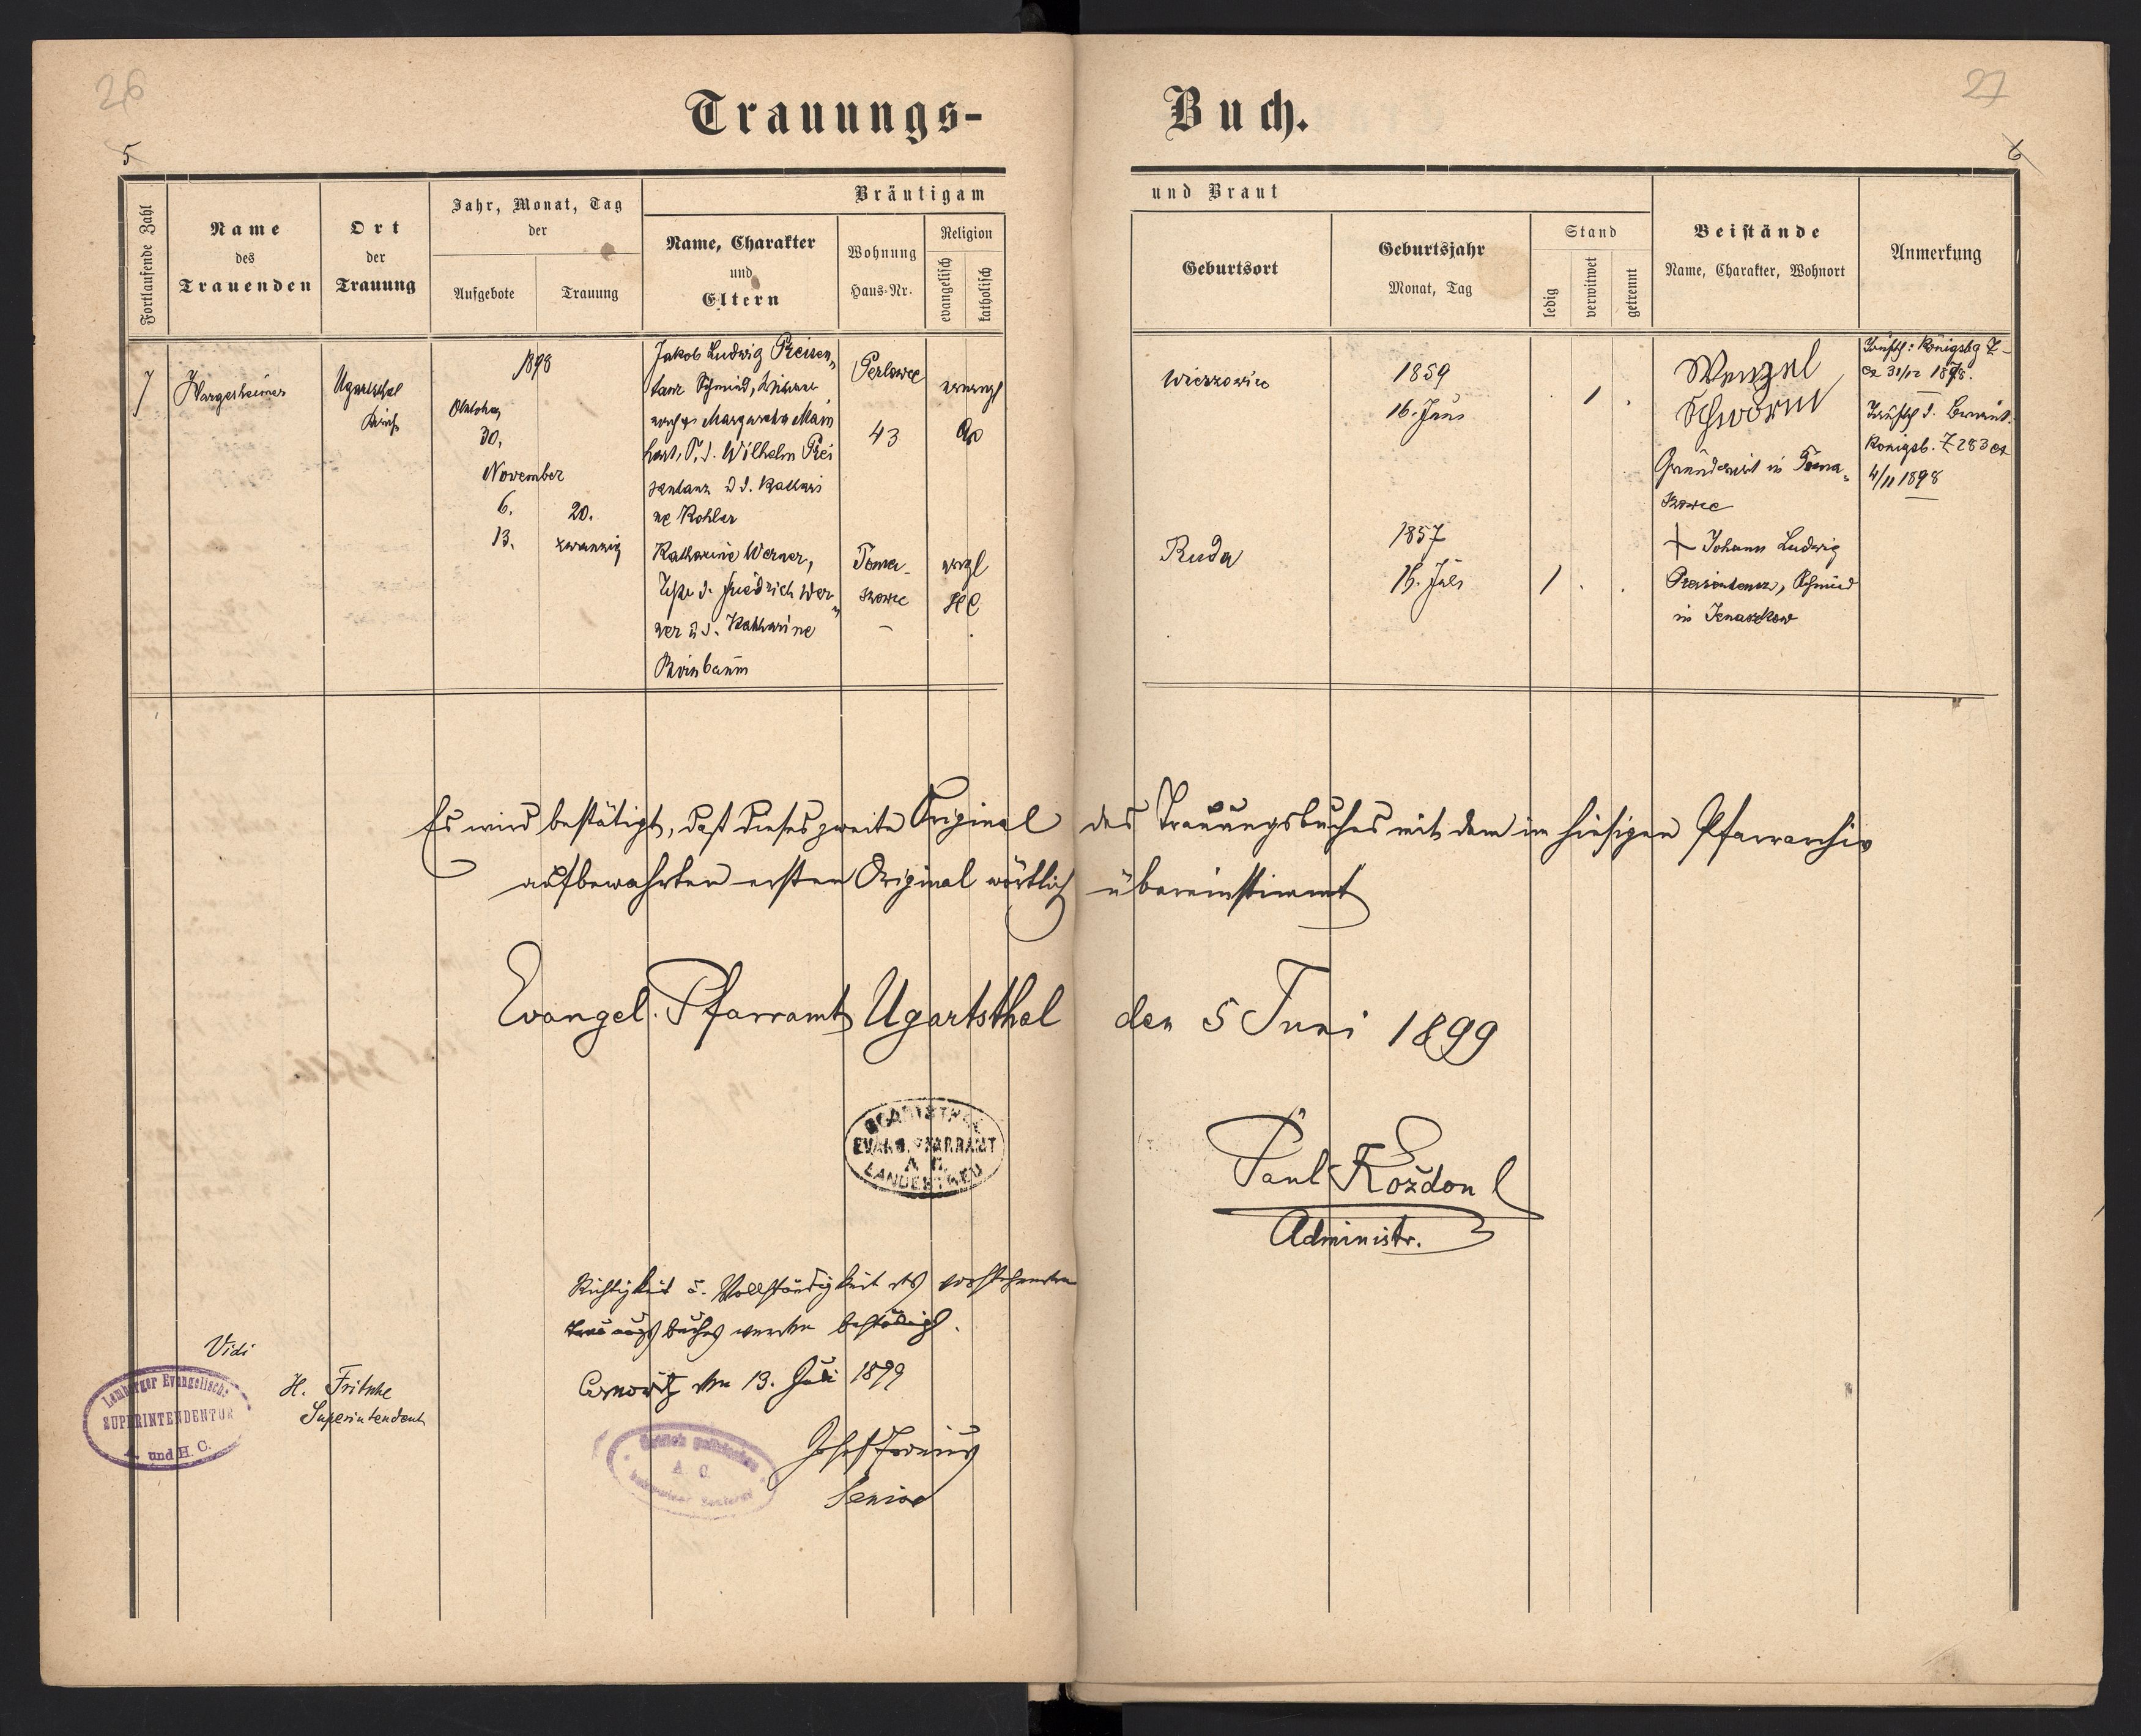 26
27
Trauungs- Buch.
5
6
Fortlaufende Zahl
Name
des
Trauenden
Ort
der
Trauung
Jahr, Monat, Tag
der
Aufgebote
Trauung
Bräutigam und Braut
Name, Charakter
und
Eltern
Wohnung
Haus-Nr.
Religion
evangelisch
katholisch
Geburtsort
Geburtsjahr
Monat, Tag
Stand
ledig
verwitwet
getrennt
Beistände
Name, Charakter, Wohnort
Anmerkung
7
Hargesheimer
Ugartsthal
1898
Oktober
30.
November
6.
13.
20.
zwanzig
Jakob Ludwig Preisen-
tanz Schmied, Witwer
nach + Margaretha Main
hart, S. d. Wilhelm Prei
sentanz u d. Kathari
ne Kohler
Perlowce
43
Wierzowice
1859
16. Juni
1
Wenzel
Schworm
Grundwirt in Toma-
szowce
1898.
Königsb. Z 283 ex
4/11 1898
Katharine Werner,
Tochter d. Friedrich Wer-
ner u d. Katharine
Weinbaum
Toma-
szowce
evgl
HC
Ruda
1857
16. Juli
1
+ Johann Ludwig
Preisentanz, Schmied
in
Es wird bestätigt, daß dieses zweite Original des Trauungsbuches mit dem im hiesigen Pfarrarchiv
aufbewahrten ersten Original wörtlich übereinstimmt
Evangel. Pfarramt Ugartsthal den 5 Juni 1899
UGARTSTHAL
EVANG. PFARRAMT
A. C.
LANDESTREU
Paul Kożdon
Administr.
Richtigkeit u. Vollständigkeit des vorstehenden
Trauungsbuches werden bestätigt.
Czernowitz den 13. Juli 1899
Josef Fronius
Senior
A. C.
Vidi
H. Fritsche
Superintendent
Lemberger Evangelische
SUPERINTENDENTUR
A. und H. C.